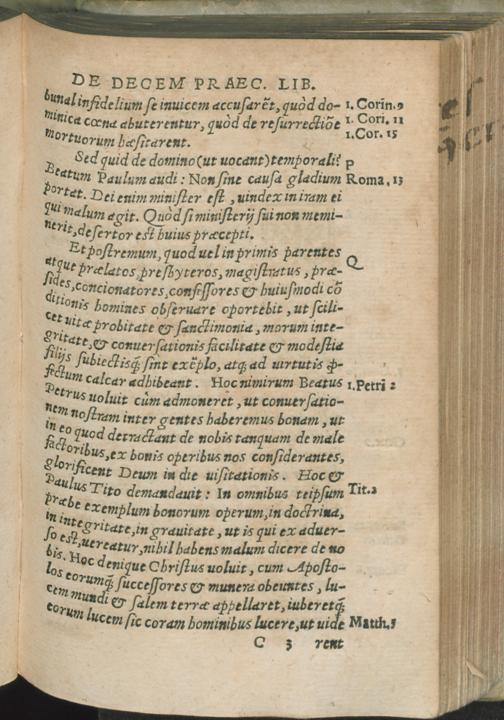 DE DECEM PRAEC. LIB.
bunal infidelium se inuicem accusarēt, quòd do- 1. Corin. 9
minica cœna abuterentur, quòd de resurrectiōe 1. Cori. 11
mortuorum hæsitarent. 1. Cor. 15
Sed quid de domino (ut uocant) temporali? P
Beatum Paulum audi: Non sine causa gladium Roma. 13
portat. Dei enim minister est, uindex in iram ei
qui malum agit. Quòd si ministerij sui non memi-
nerit, desertor est huius præcepti.
Et postremum, quod uel in primis parentes
atque prælatos, presbyteros, magistratus, præ- Q
sides, concionatores, confessores & huiusmodi cō
ditionis homines obseruare oportebit, ut scili-
cet uitæ probitate & sanctimonia, morum inte-
gritate, & conuersationis facilitate & modestia
filijs subiectisq; sint exēplo, atq; ad uirtutis ꝓ-
fectum calcar adhibeant. Hoc nimirum Beatus 1. Petri 2
Petrus uoluit cùm admoneret, ut conuersatio-
nem nostram inter gentes haberemus bonam, ut
in eo quod detractant de nobis tanquam de male
factoribus, ex bonis operibus nos considerantes,
glorificent Deum in die uisitationis. Hoc &
Paulus Tito demandauit: In omnibus teipsum Tit. 2
præbe exemplum bonorum operum, in doctrina,
in integritate, in grauitate, ut is qui ex aduer-
so est, uereatur, nihil habens malum dicere de no
bis. Hoc denique Christus uoluit, cum Aposto-
los eorumq; successores & munera obeuntes, lu-
cem mundi & salem terræ appellaret, iuberetq;
eorum lucem sic coram hominibus lucere, ut uide Matth. 5
C 3 rent